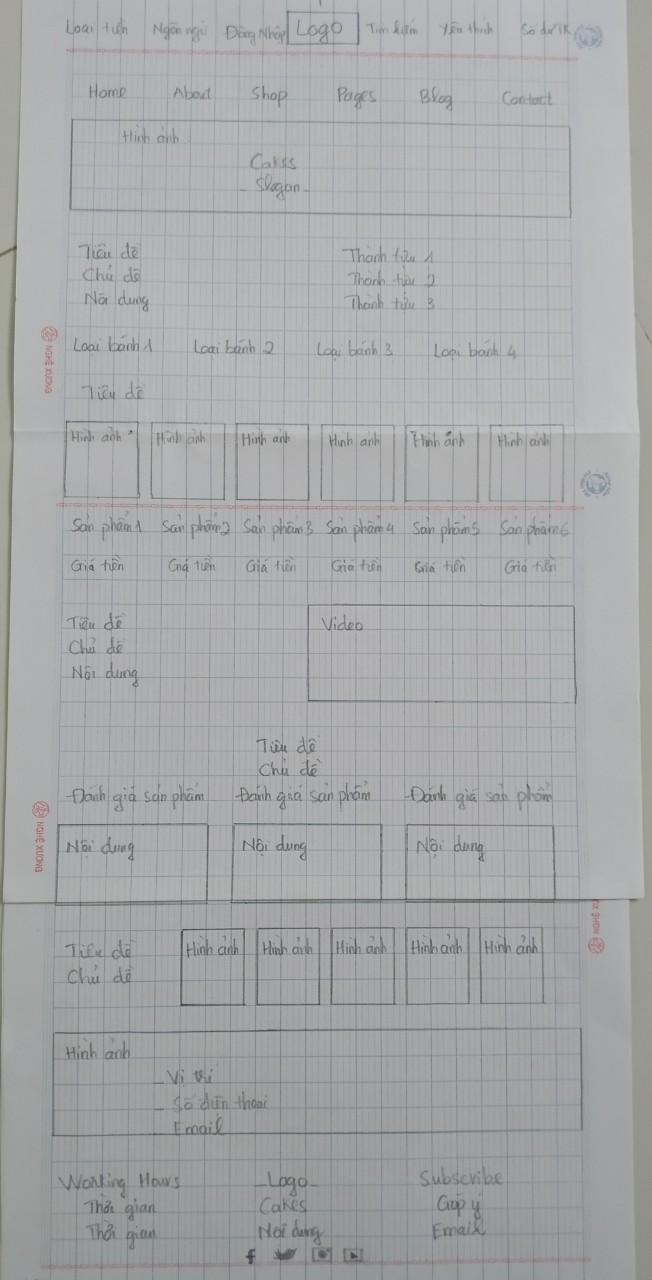 Loại tiền Ngôn ngữ Đăng Nhập Logo Tìm kiếm Yêu thích Số dư TK
Home About Shop Pages Blog Contact
Hình ảnh
Cakes
- Slogan -
Tiêu đề Thành tựu 1
Chủ đề Thành tựu 2
Nội dung Thành tựu 3
Loại bánh 1 Loại bánh 2 Loại bánh 3 Loại bánh 4
NGHỆ XƯƠNG
Tiêu đề
Hình ảnh Hình ảnh Hình ảnh Hình ảnh Hình ảnh Hình ảnh
Sản phẩm 1 Sản phẩm 2 Sản phẩm 3 Sản phẩm 4 Sản phẩm 5 Sản phẩm 6
Giá tiền Giá tiền Giá tiền Giá tiền Giá tiền Giá tiền
Tiêu đề Video
Chủ đề
Nội dung
Tiêu đề
Chủ đề
Đánh giá sản phẩm Đánh giá sản phẩm Đánh giá sản phẩm
NGHỆ XƯƠNG
Nội dung Nội dung Nội dung
Tiêu đề Hình ảnh Hình ảnh Hình ảnh Hình ảnh Hình ảnh
Chủ đề
Hình ảnh
- Vị trí
- Số điện thoại
- Email
Working Hours - Logo - Subscribe
Thời gian Cakes Góp ý
Thời gian Nội dung Email